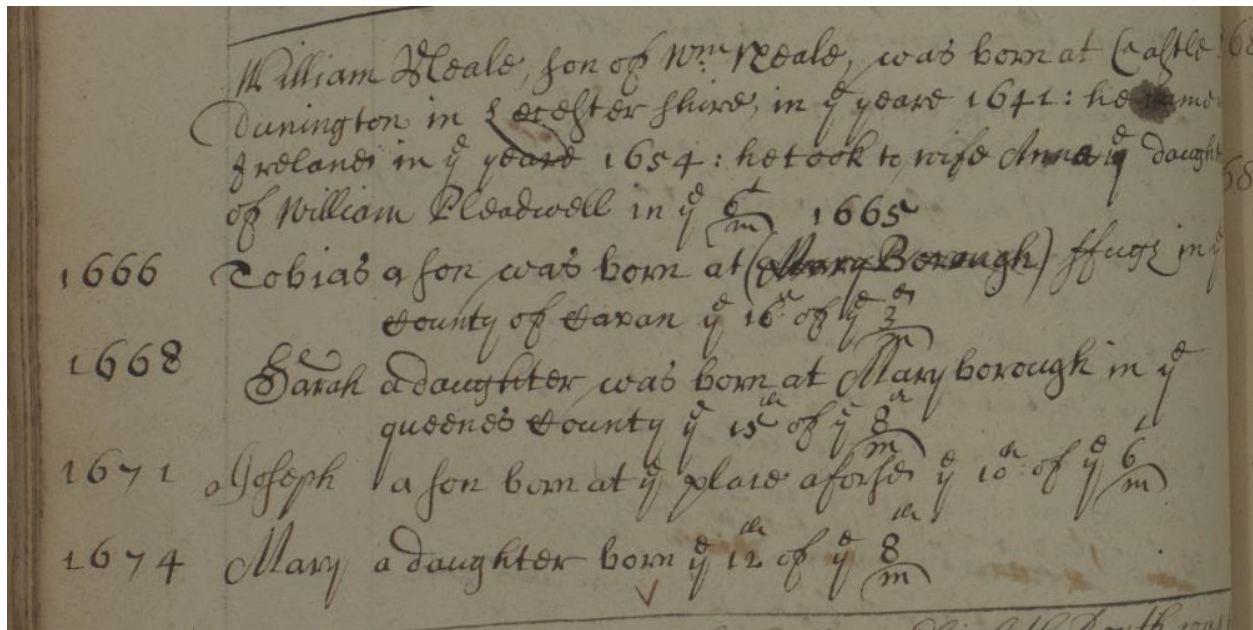 William Neale, son of Wm Neale, was born at Castle
Dunington in Lecester shire, in ye yeare 1641: he
Ireland in ye yeare 1654: he took to wife Anne ye daught
of William Pleadwell in ye 6t m 1665
1666 Tobias a son was born at (Mary Borough) in ye
County of Cavan ye 16th of ye 3d m
1668 Sarah a daughter was born at Mary borough in ye
queenes County ye 15th of ye 8th m
1671 Joseph a son born at ye place aforsd ye 10th of ye 6t m
1674 Mary a daughter born ye 12th of ye 8th m